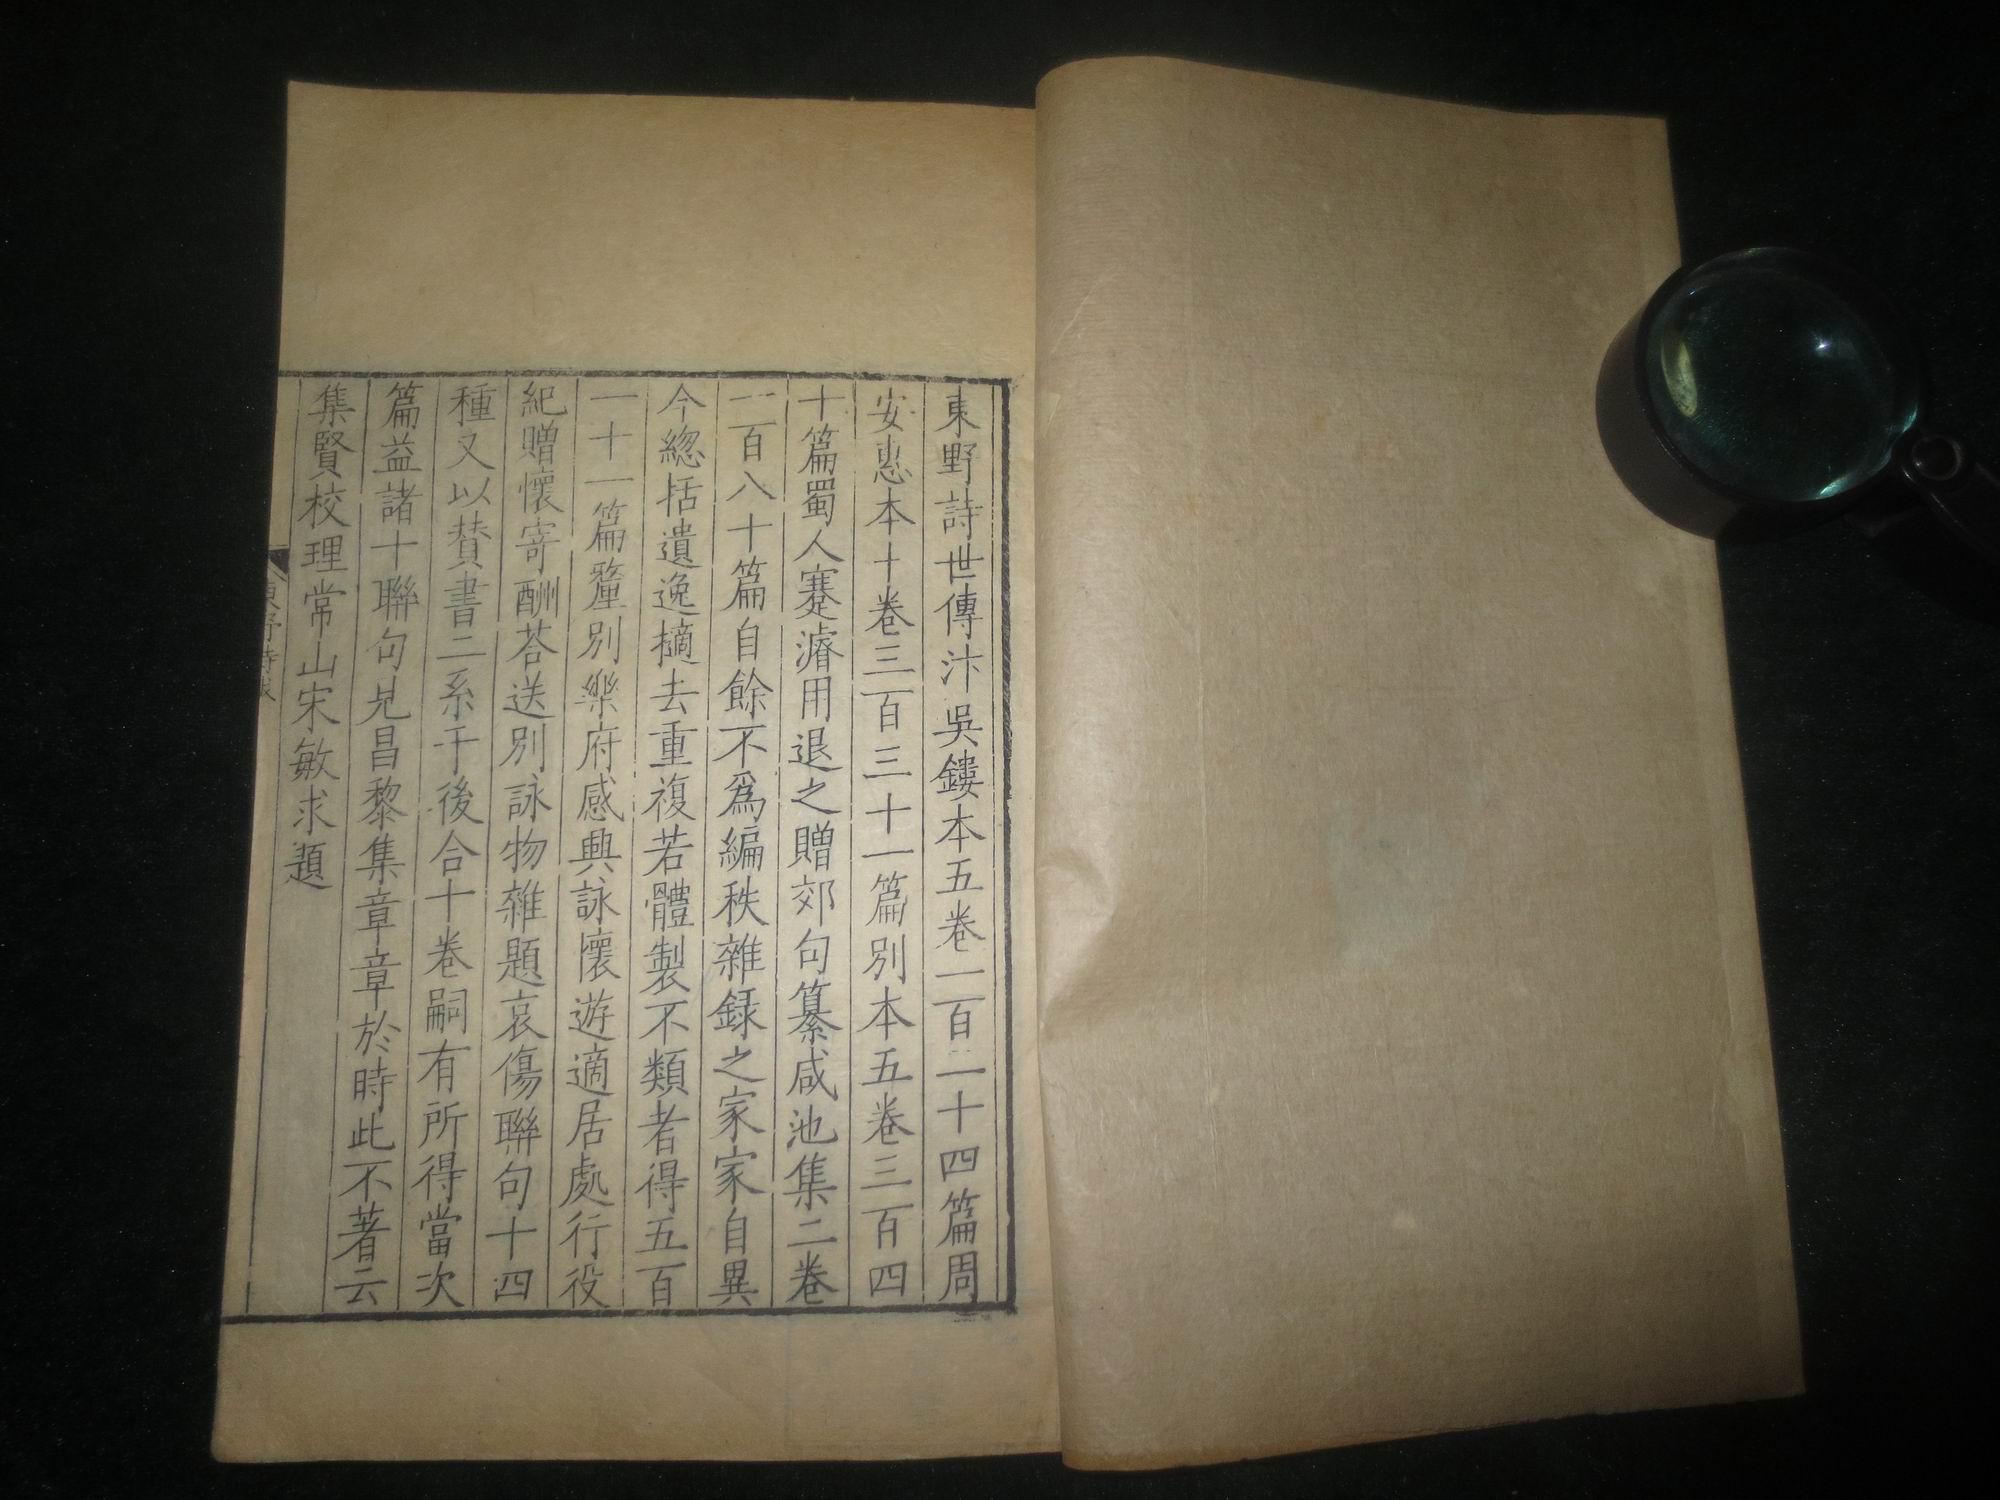 東野詩世傳汴吳鏤本五卷一百二十四篇周
安惠本十卷三百三十一篇別本五卷三百四
十篇蜀人蹇濬用退之贈郊句纂咸池集二卷
一百八十篇自餘不爲編秩雜録之家家自異
今緫括遺逸擿去重複若體製不類者得五百
一十一篇釐別樂府感興詠懷遊適居處行役
紀贈懷寄酬荅送別詠物雜題哀傷聯句十四
種又以賛書二系于後合十卷嗣有所得當次
篇益諸十聯句見昌黎集章章於時此不著云
集賢校理常山宋敏求題
東野詩